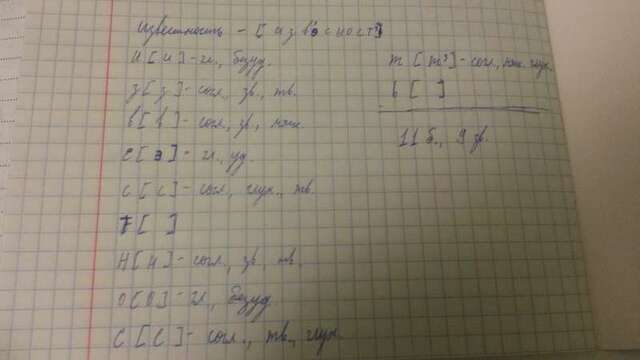 известность - [ и з в' э с н о с т' ]
И [и] - гл., безуд.
з [з] - согл., зв., тв.
в [в] - согл., зв., мяг.
е [э] - гл., уд.
с [с] - согл., глух., тв.
т [ ]
н [н] - согл., зв., тв.
о [о] - гл., безуд.
с [с] - согл., тв., глух.
т [т'] - согл., мяг. глух.
ь [ ]
11 б., 9 зв.